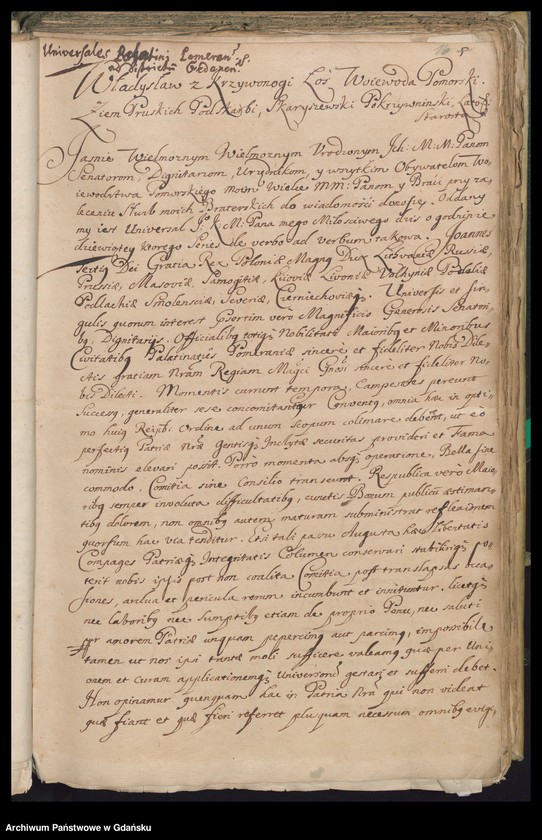 Universales
Pomeran.
ad districtū Gedanen.
8
Władysław z Krzywonogi Łoś Woiewoda Pomorski.
Ziem Pruskich Podskarbi, Skaryszewski Pokrzywninski,
Starosta
Jasnie Wielmoznym Wielmoznym Urodzonym Ich: M: M: Panom
Senatorom, Dignitarzom, Urzędnikom, y wszytkim Obywatelom Wo-
iewodztwa Pomorskiego moim Wielce MM: Panom y Braci przy za-
leceniu Słuzb moich Braterskich do wiadomości donoszę. Oddany
my iest Universal J. K. M: Pana mego Miłosciwego dzis o godzinie
dziewiątey ktorego Sens de verbo ad verbum takowa. Joannes
Tertiꝯ Dei Gratia Rex Poloniæ Magnꝯ Dux Lithvaniæ Russiæ,
Prussiæ, Masoviæ, Samogitiæ, Kijoviæ Livoniæ Volhyniæ Podoliæ
Podlachiæ Smolensciæ, Severiæ, Czerniechoviæqꝫ. Universis et sin-
gulis quorum interest Gsortim verò Magnificis Generosis Senatori-
bꝯ, Dignitarijs. Officialibꝯ totiqꝫ Nobilitati Maioribꝯ et Minoribus
Civitatibꝯ Palatinatus Pomeraniæ sincerè et fideliter Nobis Dile-
ctis gratiam Nram Regiam Magci Gnosi sincerè et fideliter No-
bis Dilecti. Momentis currunt tempora, Campestres pereunt
Successꝯ, generaliter sese concomitantur Conventꝯ, omnia hæc in opti-
mo huiꝯ Reipb: Ordine ad unum scopum colimare debent, ut eò
perfectiꝯ Patriæ Nræ Gentisqꝫ Inclytæ securitas provideri et Fama
nominis elevari possit. Porro momenta absqꝫ operatione, Bella sine
commodo. Comitia sine Consilio transeunt. Respublica verò Maio-
ribꝯ semper involuta difficultatibꝯ, cunctis Bonum publicū æstiman-
tibꝯ dolorem, non omnibꝯ autem maturam subministrat reflexionem
quorsum hac via tenditur. Etsi tali passu Augusta hæc libertatis
Compages Patriæqꝫ Integritatis Columen conservari stabiliriqꝫ po-
terit nobis ipsis post non coalita Comitia, post translapsas occa-
siones, ardua et pericula rerum incumbunt et innituntur. licetqꝫ
nec laboribꝯ nec sumptibꝯ etiam de proprio Penu, nec saluti
ppr amorem Patriæ unquam pepercimꝯ aut parcimꝯ, impossibile
tamen ut nos ipsi tantæ moli sufficere valeamꝯ quæ per Uni-
onem et curam applicationemqꝫ Universorū gestari et sufferi debet.
Non opinamur quenquam hac in Patria Nra qui non videat
quæ fiant et quæ fieri referret plusquam necessum omnibꝯ exigi,
Archiwum Państwowe w Gdańsku